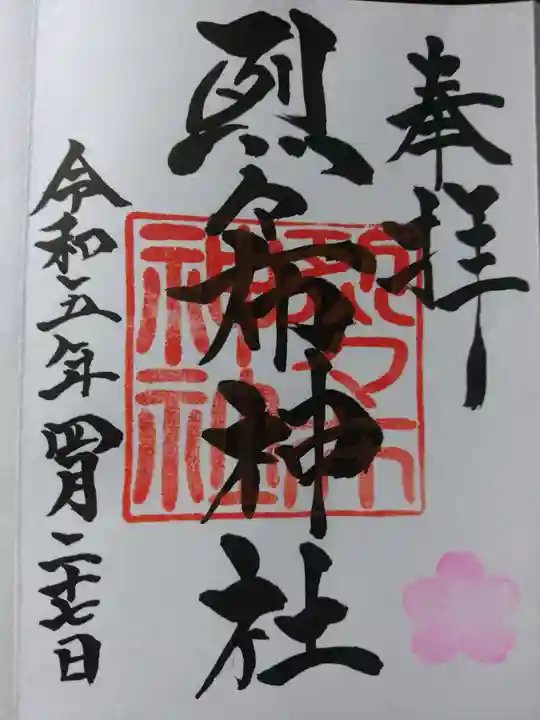 奉拝
烈々布神社
令和五年四月二十七日